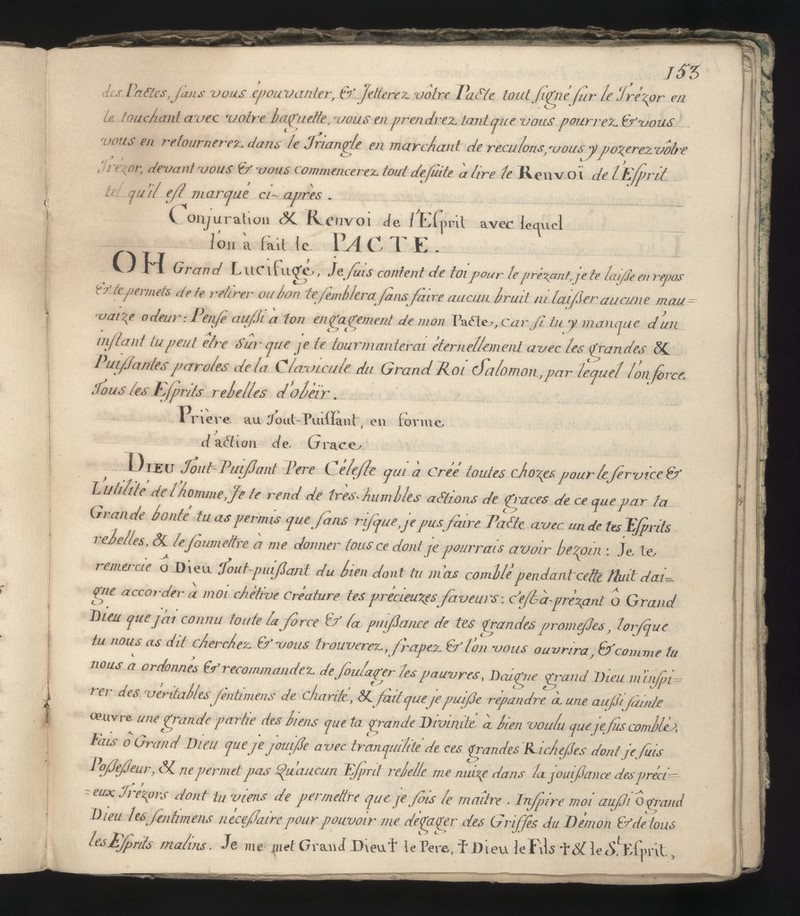 153
des Pactes, sans vous épouvanter, & Jetterez vôtre Pacte tout signé sur le Trézor en
le touchant avec votre baguette, vous en prendrez tant que vous pourrez & vous
vous en retournerez dans le Triangle en marchant de reculons, vous y pozerez vôtre
Trézor, devant vous & vous commencerez tout desuite à lire le Renvoï de l'Esprit
tel qu'il est marqué ci-après.
Conjuration & Renvoi de l'Esprit avec lequel
l'on a fait le PACTE.
OH Grand Lucifugé, Je suis content de toi pour le prézant, je te laisse en repos
& te permets de te retirer ou bon te semblera sans faire aucun bruit ni laisser aucune mau=
vaize odeur: Pense aussi à ton engagement de mon Pacte, car si tu y manque d'un
instant tu peut être Sûr que je te tourmanterai éternellement avec les grandes &
Puissantes paroles de la Clavicule du Grand Roi Salomon, par lequel l'on force
Tous les Esprits rebelles d'obéir.
Prière au Tout-Puissant, en forme
d'action de Grace
DIEU Tout-Puissant Pere Céleste qui à créé toutes chozes pour le service &
L'utilité de l'homme, Je te rend de très-humbles actions de graces de ce que par ta
Grande bonté tu as permis que sans risque, je pus faire Pacte avec un de tes Esprits
rebelles, & le soumettre à me donner tous ce dont je pourrais avoir bezoin: Je te
remercie ô Dieu Tout-puissant du bien dont tu m'as comblé pendant cette Nuit dai=
gne accorder à moi chétive créature tes précieuzes faveurs: c'est-à-prézant ô Grand
Dieu que j'ai connu toute la force & la puissance de tes grandes promesses, lorsque
tu nous as dit cherchez & vous trouverez, frapez & l'on vous ouvrira, & comme tu
nous a ordonnés & recommandez de soulager les pauvres, Daigne grand Dieu m'inspi=
rer des véritables sentimens de charité, & fait que je puisse répandre à une aussi sainte
œuvre une grande partie des biens que ta grande Divinité à bien voulu que je fus comblé,
Fais ô Grand Dieu que je jouisse avec tranquilité de ces grandes Richesses dont je suis
Possesseur, & ne permet pas Qu'aucun Esprit rebelle me nuize dans la jouissance des préci=
=eux Trézors dont tu viens de permettre que je sois le maître. Inspire moi aussi Ô grand
Dieu les sentimens nécessaire pour pouvoir me dégager des Griffes du Démon & de tous
les Esprits malins. Je me met Grand Dieu † le Pere, † Dieu le Fils † & le St. Esprit,